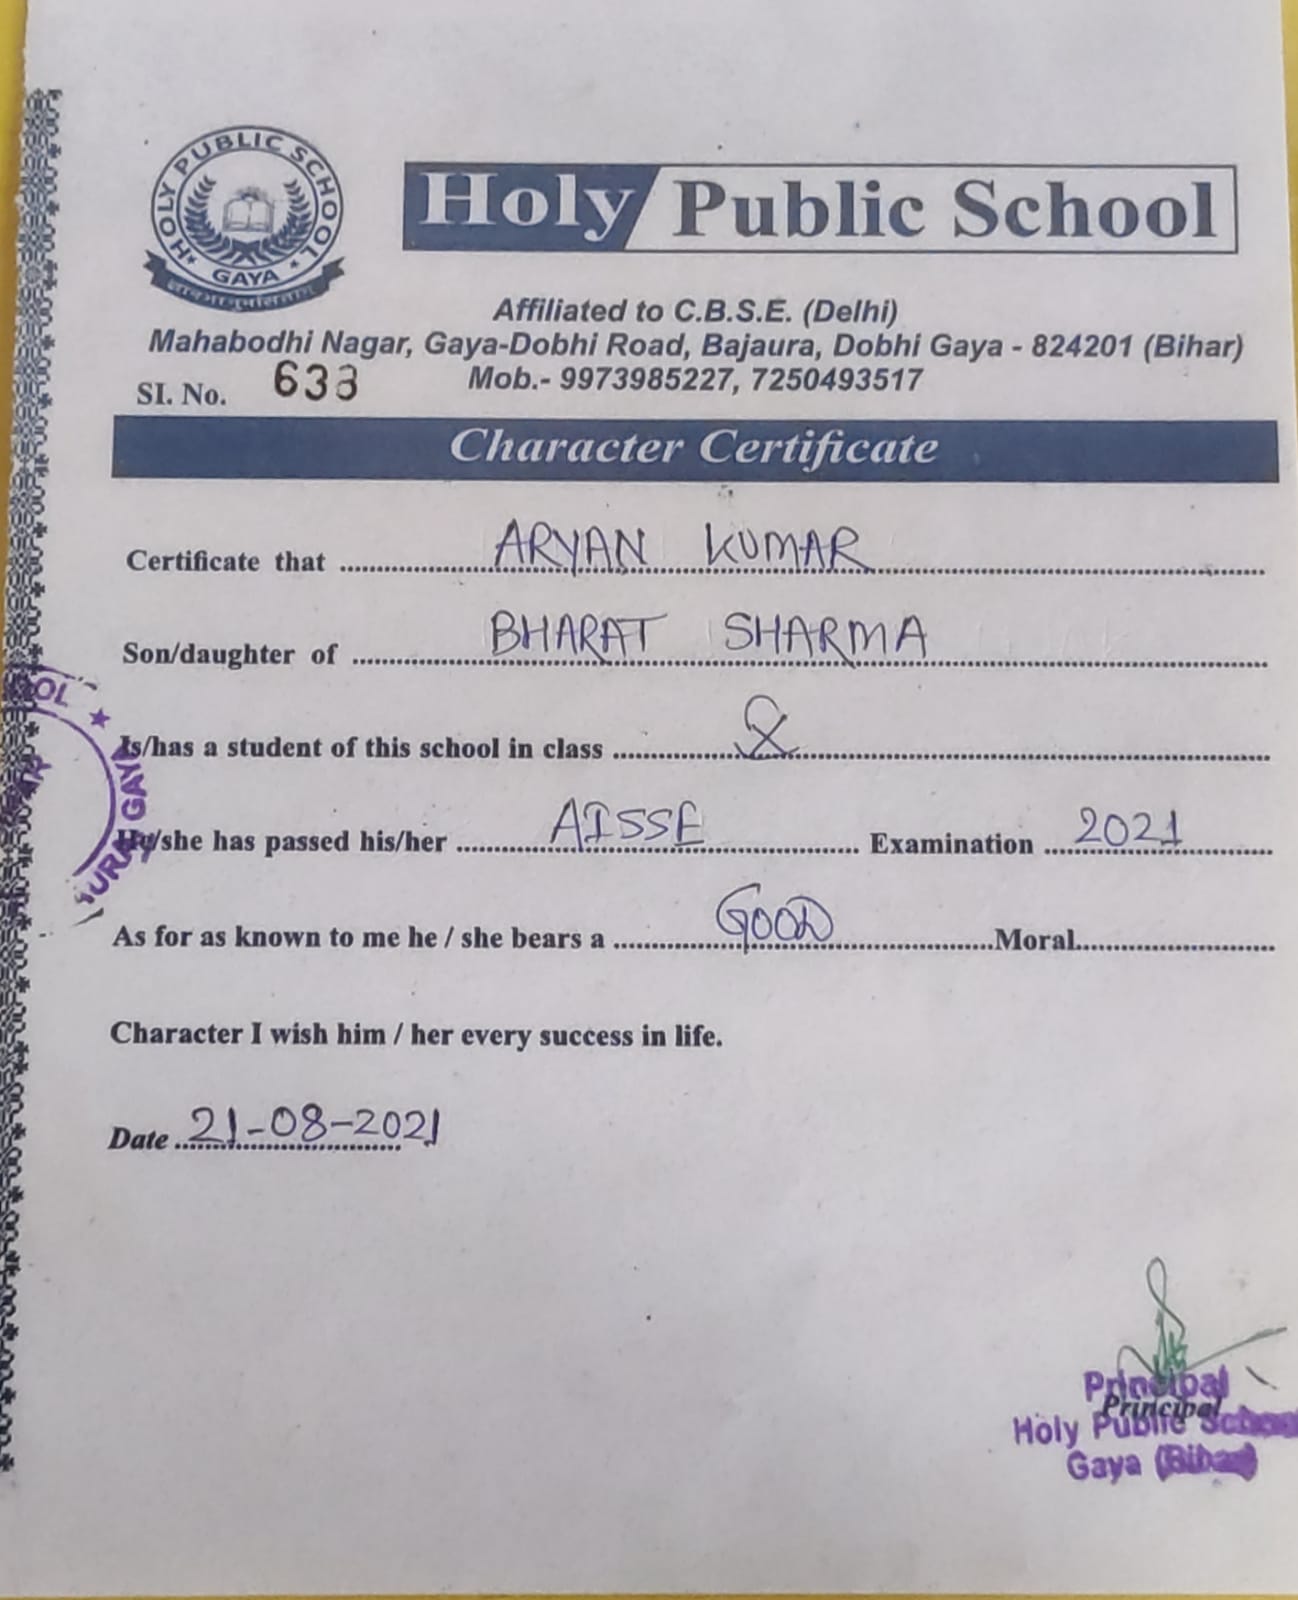 HOLY PUBLIC SCHOOL
★ GAYA ★
Holy Public School
Affiliated to C.B.S.E. (Delhi)
Mahabodhi Nagar, Gaya-Dobhi Road, Bajaura, Dobhi Gaya - 824201 (Bihar)
Mob.- 9973985227, 7250493517
SI. No. 633
Character Certificate
Certificate that ARYAN KUMAR
Son/daughter of BHARAT SHARMA
Is/has a student of this school in class X
He/she has passed his/her AISSE Examination 2021
As for as known to me he / she bears a GOOD Moral
Character I wish him / her every success in life.
Date 21-08-2021
Principal
Principal
Holy Public School
Gaya (Bihar)
GAYA